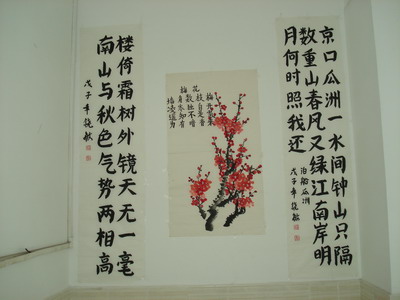 京口瓜洲一水间钟山只隔
数重山春风又绿江南岸明
月何时照我还
泊船瓜洲
戊子年
楼倚霜树外镜天无一毫
南山与秋色气势两相高
戊子年